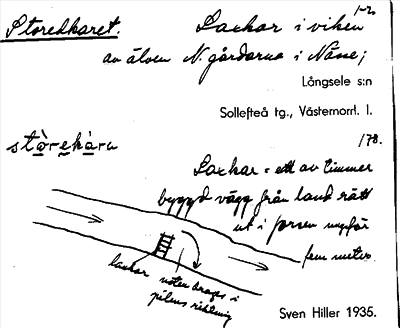 Storedkaret.
1-2.
Laxkar i viken
av älven N. gårdarna i Nässe;
Långsele s:n
Sollefteå tg., Västernorrl. l.
178.
stòrekàra
Laxkar = ett av timmer
byggd vägg från land rätt
ut i forsen ungefär
fem meter.
laxkar
noten drages i
pilens riktning
Sven Hiller 1935.